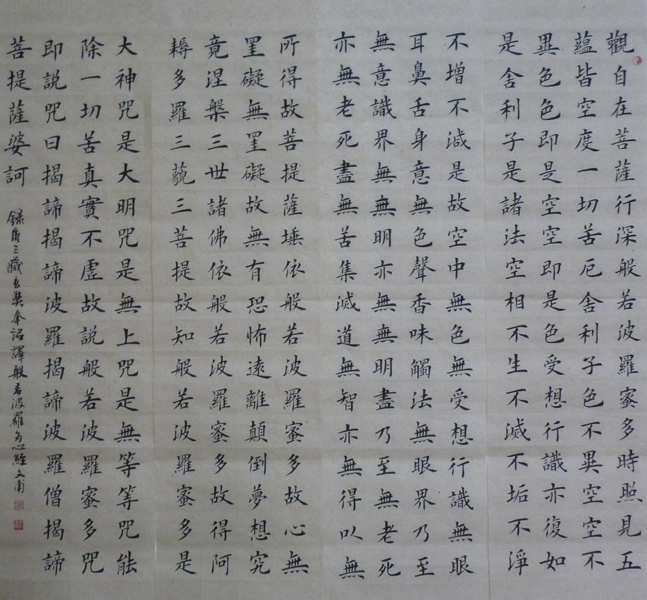 觀自在菩薩行深般若波羅蜜多時照見五
蘊皆空度一切苦厄舍利子色不異空空不
異色色即是空空即是色受想行識亦復如
是舍利子是諸法空相不生不滅不垢不淨
不增不減是故空中無色無受想行識無眼
耳鼻舌身意無色聲香味觸法無眼界乃至
無意識界無無明亦無無明盡乃至無老死
亦無老死盡無苦集滅道無智亦無得以無
所得故菩提薩埵依般若波羅蜜多故心無
罣礙無罣礙故無有恐怖遠離顛倒夢想究
竟涅槃三世諸佛依般若波羅蜜多故得阿
耨多羅三藐三菩提故知般若波羅蜜多是
大神咒是大明咒是無上咒是無等等咒能
除一切苦真實不虛故說般若波羅蜜多咒
即說咒曰揭諦揭諦波羅揭諦波羅僧揭諦
菩提薩婆訶
錄唐三藏玄奘奉詔譯般若波羅多心經文甫